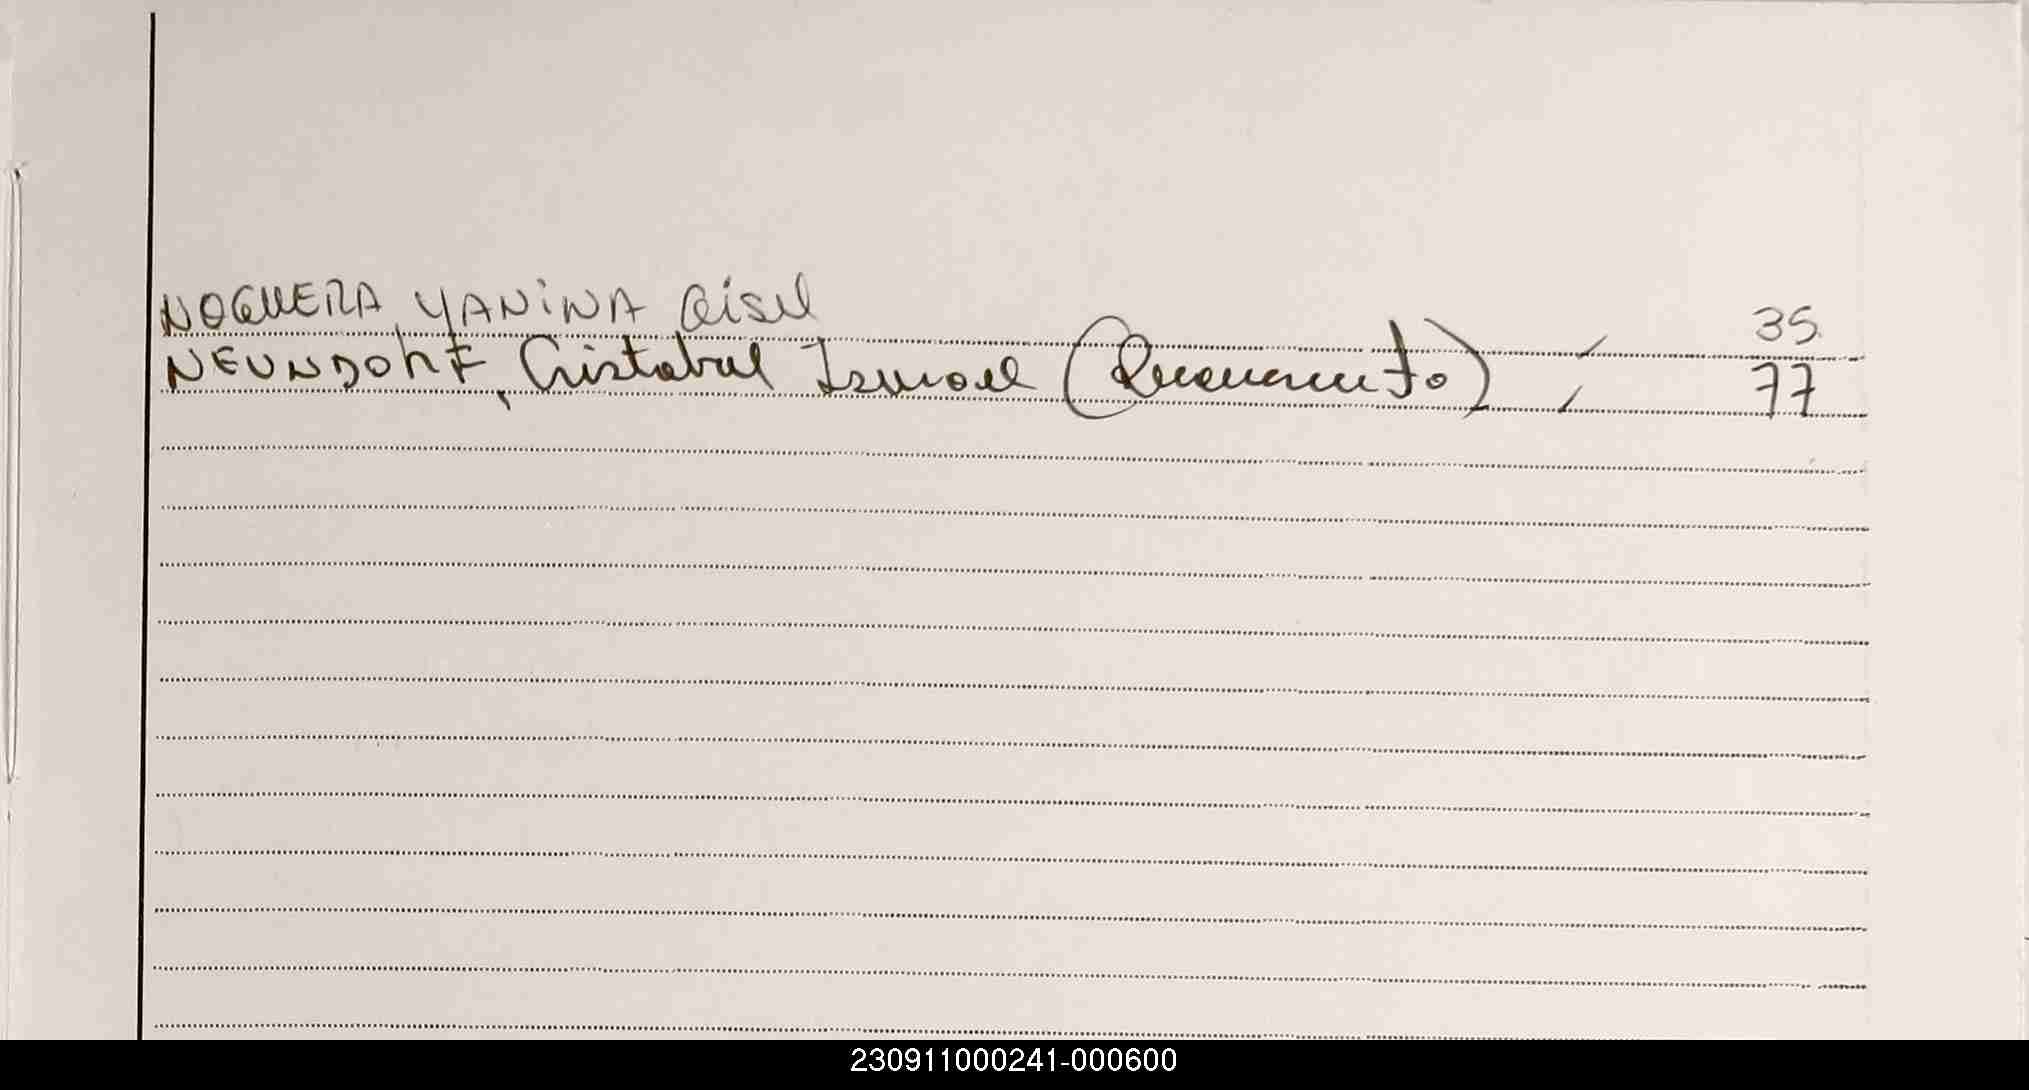 NOGUERA, YANINA Gisel 35
NEUNDORF, Cristobal Ismael (Reconocimiento) 77
230911000241-000600